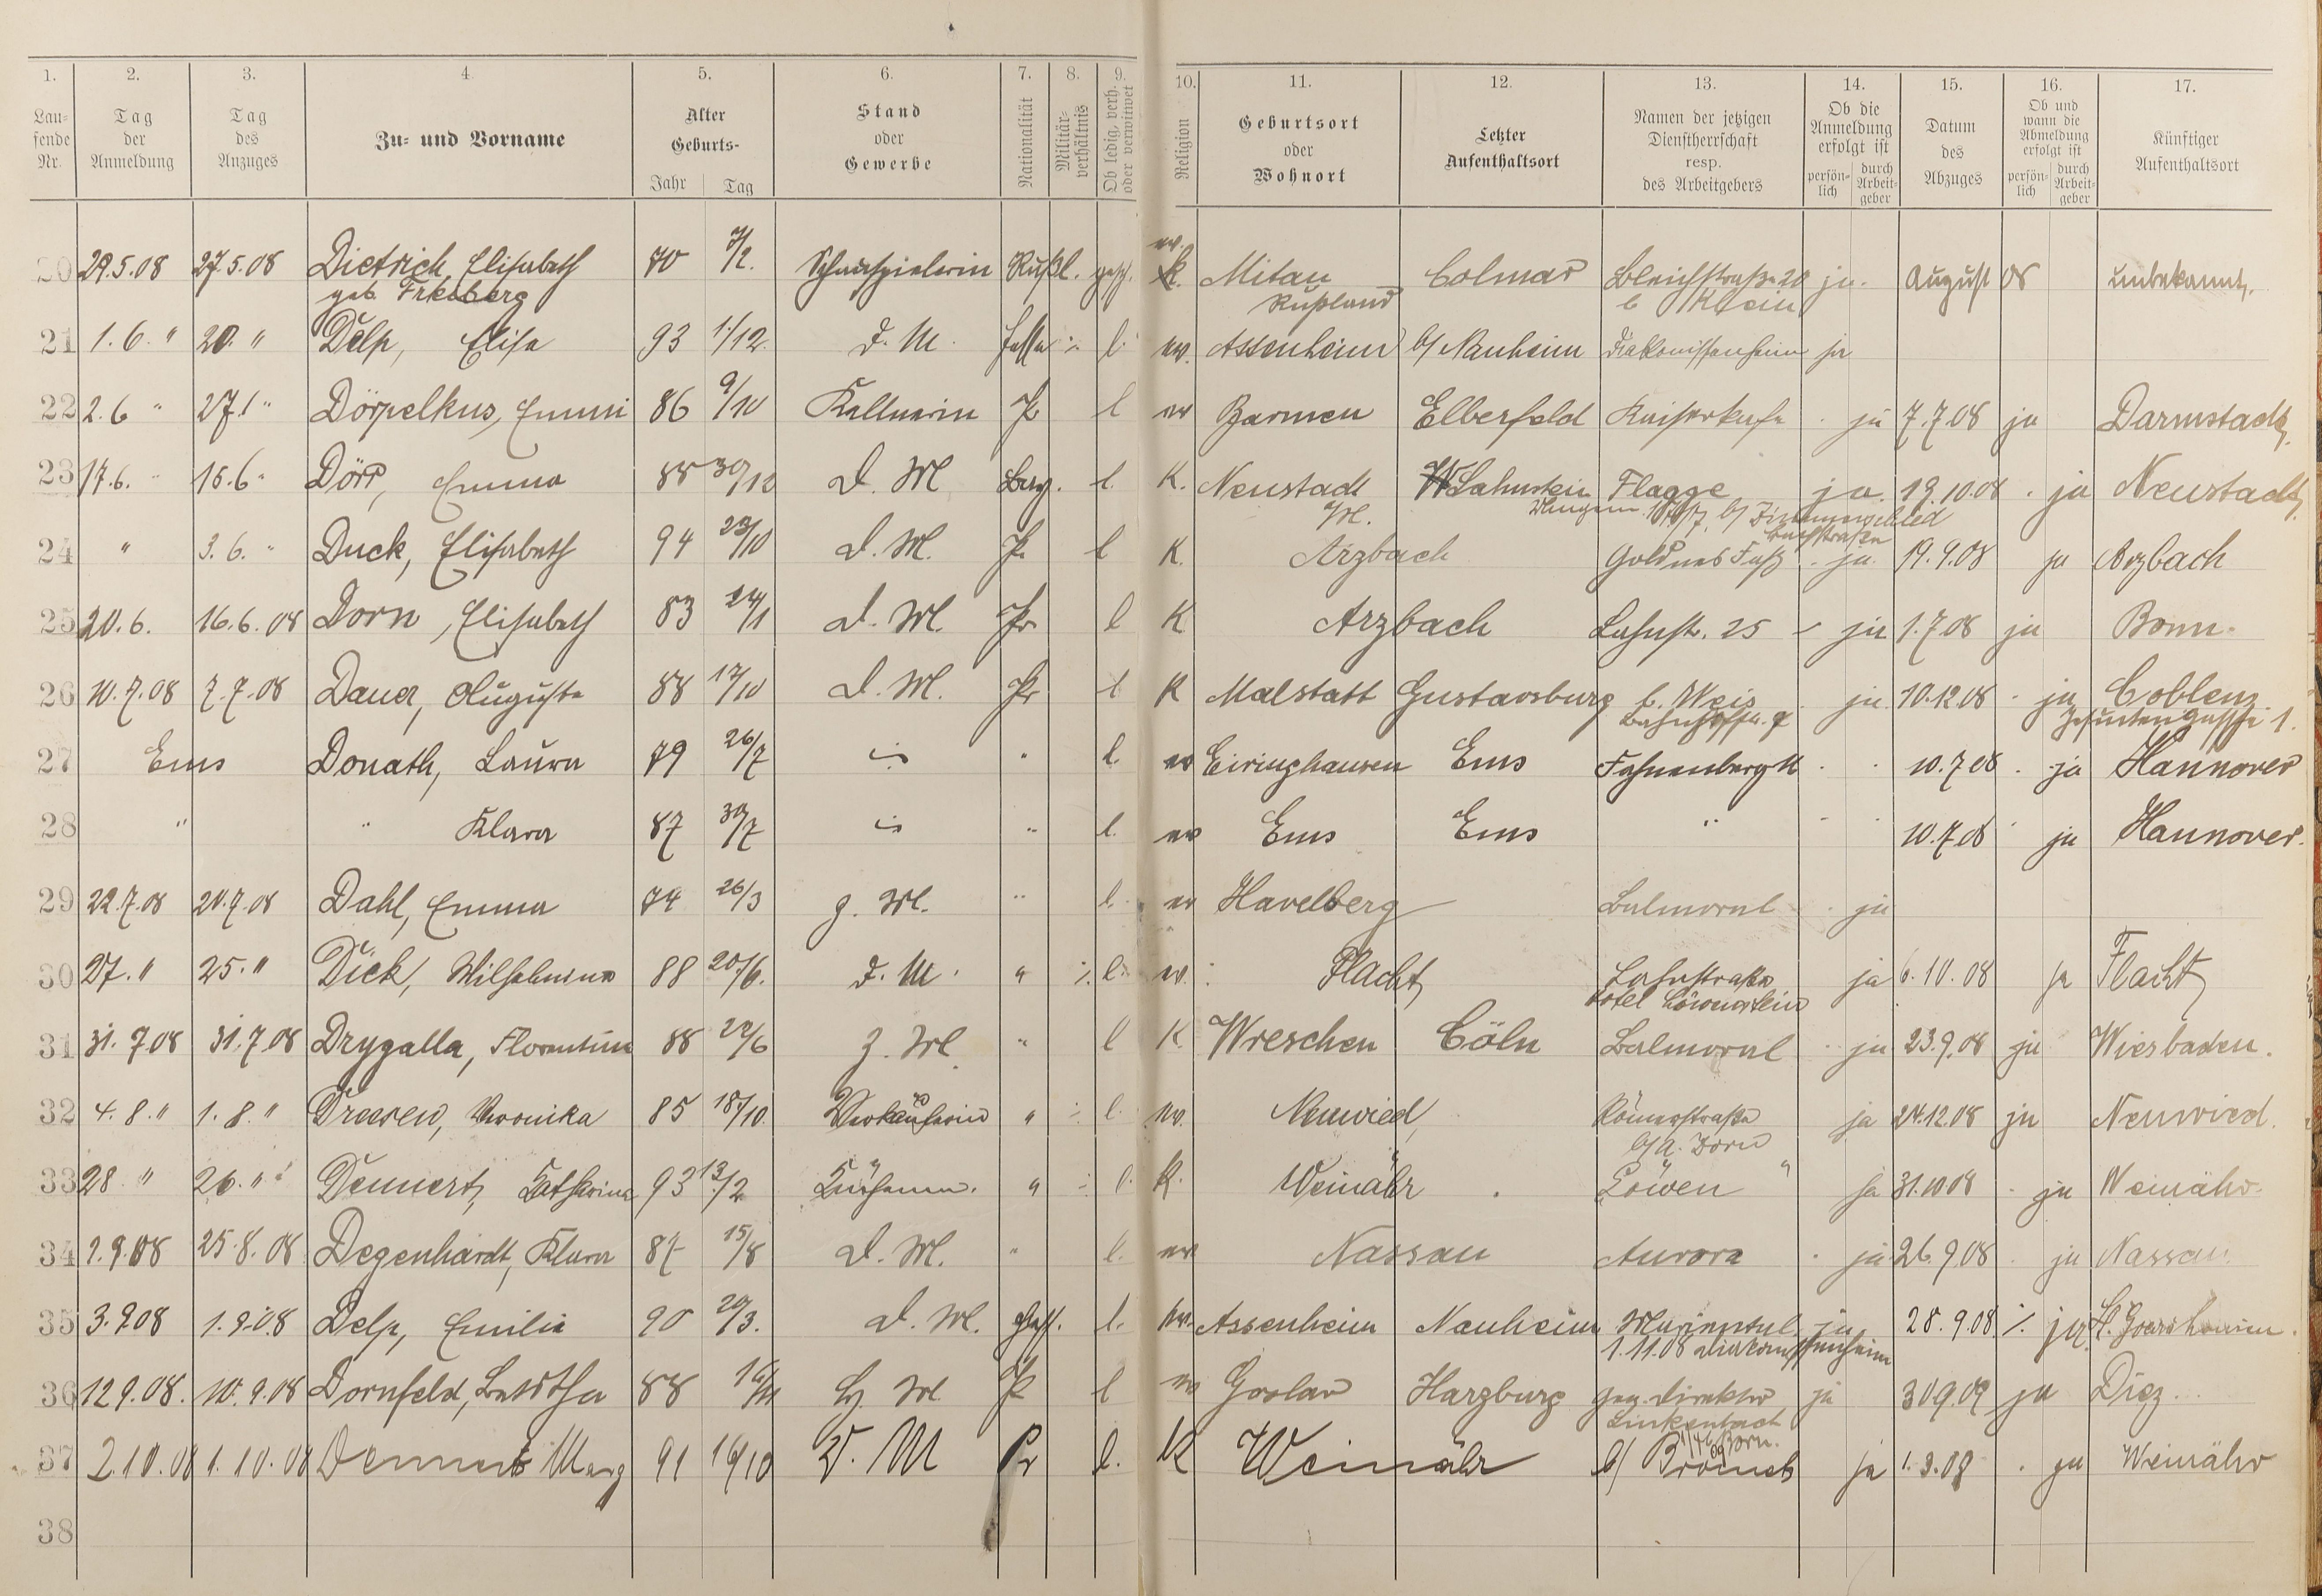 1. 2. 3. 4. 5. 6. 7. 8. 9. 10. 11. 12. 13. 14. 15. 16. 17.
Laufende Nr. Tag der Anmeldung Tag des Anzuges Zu- und Vorname Alter Geburts- Jahr Tag Stand oder Gewerbe Nationalität Militärverhältnis Ob ledig, verh. oder verwitwet Religion Geburtsort oder Wohnort Letzter Aufenthaltsort Namen der jetzigen Dienstherrschaft resp. des Arbeitgebers Ob die Anmeldung erfolgt ist persönlich durch Arbeitgeber Datum des Abzuges Ob und wann die Abmeldung erfolgt ist persönlich durch Arbeitgeber Künftiger Aufenthaltsort
20 29.5.08 27.5.08 Dietrich, Elisabeth 70 7/2. Schauspielerin Rußl. gesch. ev. K. Mitau Colmar Bleichstraße 20 ja. August 08 unbekannt.
geb. Rußland b Klein
21 1.6. " 20. " Delp, Elise 93 1./12. D. M. Hessen ./. l. ev. Assenheim b/ Nauheim Diakonissenheim ja
22 2.6 " 27. " Dörpelkus, Emmi 86 9/10 Kellnerin Pr l ev Barmen Elberfeld Kaiserkafe ja 7.7.08 ja Darmstadt,
23 17.6. " 15.6 " Dörr, Emma 88 30/12 D. M Bay. l. K. Neustadt Lahnstein Flagge ja. 19.10.08 . ja Neustadt,
24 " 3.6. " Duck, Elisabeth 94 23/10 D. M. Pr l K. Arzbach Goldnes Faß . ja. 19.9.08 ja Arzbach
25 20.6. 16.6.08 Dorn, Elisabeth 83 24/1 D. M. Pr l K Arzbach Lahnstr. 25 ja 1.7.08 ja Bonn.
26 10.7.08 7.7.08 Dauer, Auguste 88 17/10 D. M. Pr l K Malstatt Gustavsburg b. Weis ja. 10.12.08 . ja Coblenz
Bahnhofstr. 9 Jesuitengasse 1.
27 Ems Donath, Laura 79 26/7 " l. ev Eiringhausen Ems Fahnenberg . . 10.7.08 . ja Hannover
28 " " Klara 87 30/7 " l. ev Ems Ems " 10.7.08 ja Hannover.
29 22.7.08 20.7.08 Dahl, Emma 74 26/3 Z. M. " l. ev Havelberg Balmoral . ja
30 27. " 25. " Dick, Wilhelmine 88 20./6. D. M. " ./. l. ev. Flacht, Lahnstraße ja 6.10.08 ja Flacht,
Hotel Löwenstein
31 31.7.08 31.7.08 Drygalla, Florentine 88 22/6 Z. M. " l K. Wreschen Cöln Balmoral . ja 23.9.08 ja Wiesbaden.
32 4.8. " 1.8. " Dreesen, Veronika 85 18./10. Verkäuferin " ./. l. ev. Neuwied, Römerstraße ja 24.12.08 ja Neuwied.
b/ A. Dorn
33 28 " 26. " Dennert, Katharina 93 13./2 Küchenm. " ./. l. K. Weinähr . "Löwen" ja 31.10.08 . ja Weinähr.
34 1.9.08 25.8.08 Degenhardt, Klara 87 15/8 D. M. " l. ev Nassau Aurora . ja 26.9.08 . ja Nassau.
35 3.9.08 1.9.08 Delp, Emilie 90 20/3. D. M. Hess. l. ev. Assenheim Nauheim ja 28.9.08 ./. ja St. Goarshausen.
1.11.08 Diakonissenheim
36 12.9.08. 10.9.08 Dornfeld, Bertha 88 M. Pr l ev Goslar Harzburg ja 30.9.09 ja Diez.
Linkenbach
37 2.10.08 1.10.08 Dennert Marg 91 16/10 D. M Pr l. K Weinähr b/ ja 1.3.09 . ja Weinähr
38